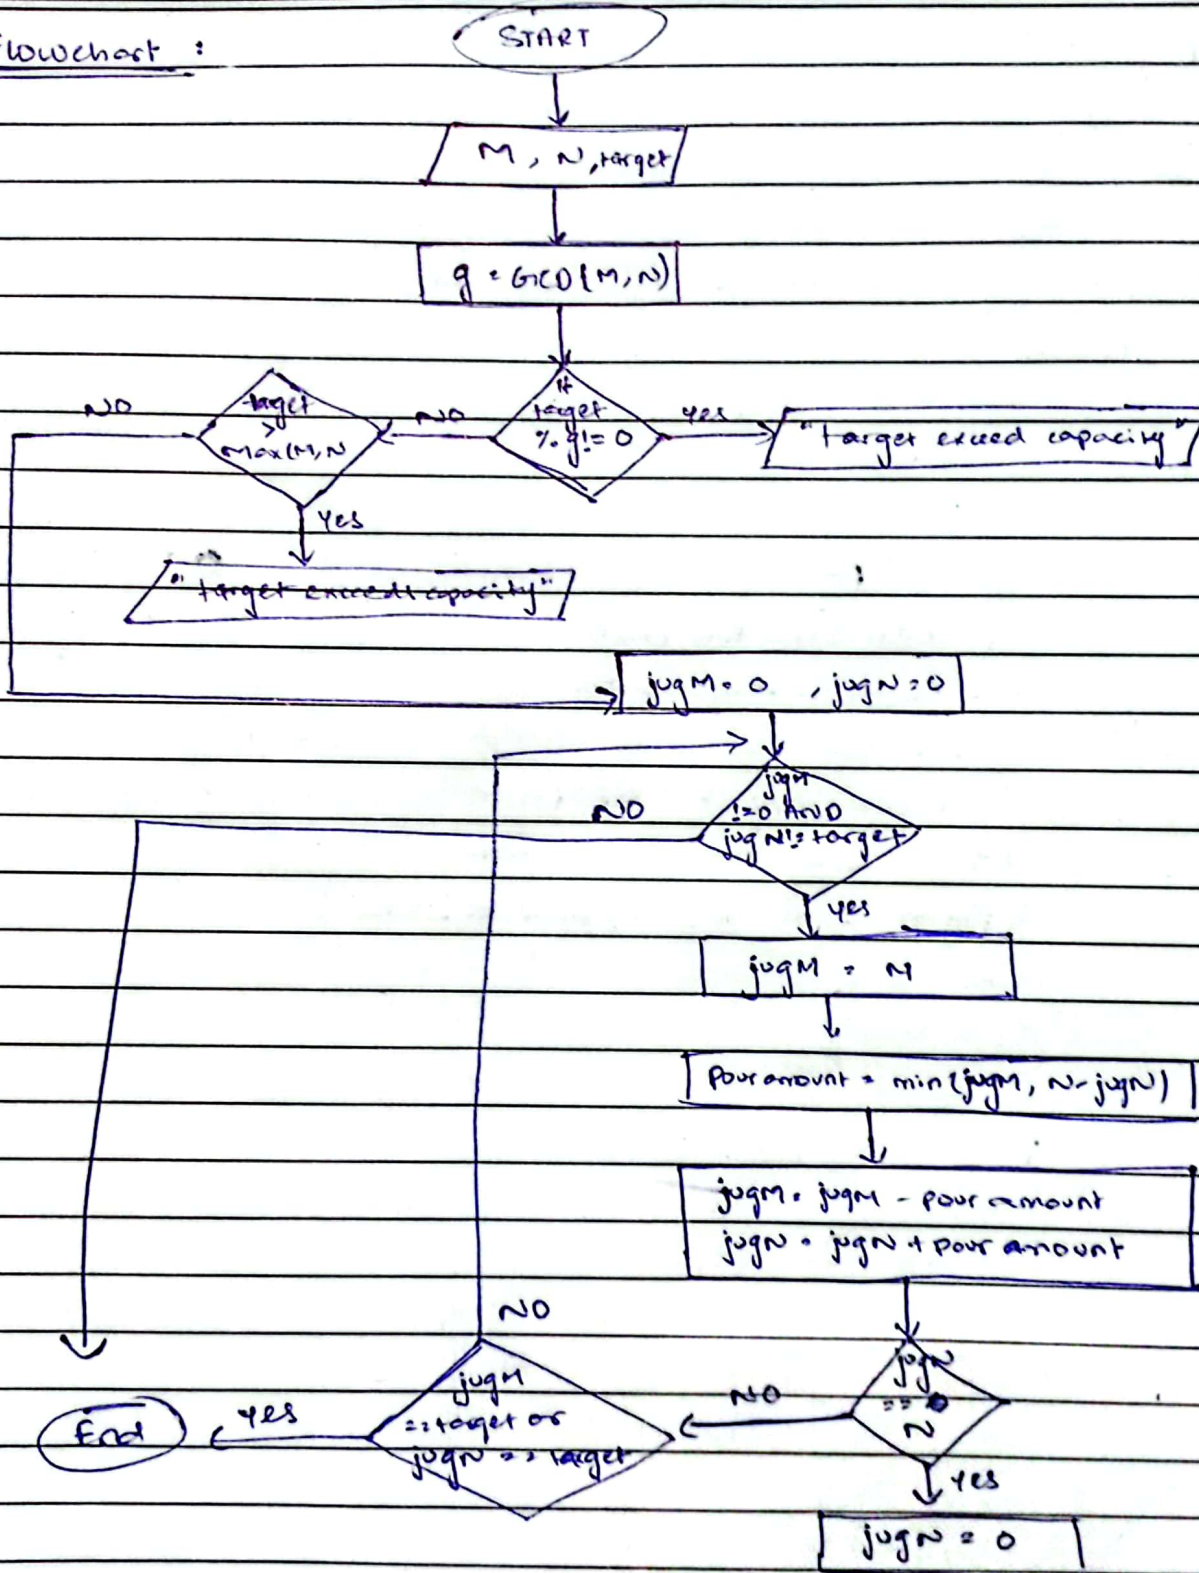 lowchart :
START
M, N, target
g = GCD(M, N)
If
target
% g != 0
NO
yes
"target exceed capacity"
taget
>
Max(M, N
NO
Yes
"target exceeds capacity"
jugM = 0 , jugN = 0
jugM
!=0 AND
jugN != target
NO
yes
jugM = M
Pouramount = min(jugM, N - jugN)
jugM = jugM - pour amount
jugN = jugN + pour amount
jugN
==
N
NO
yes
jugN = 0
jugM
== target or
jugN == target
NO
yes
End